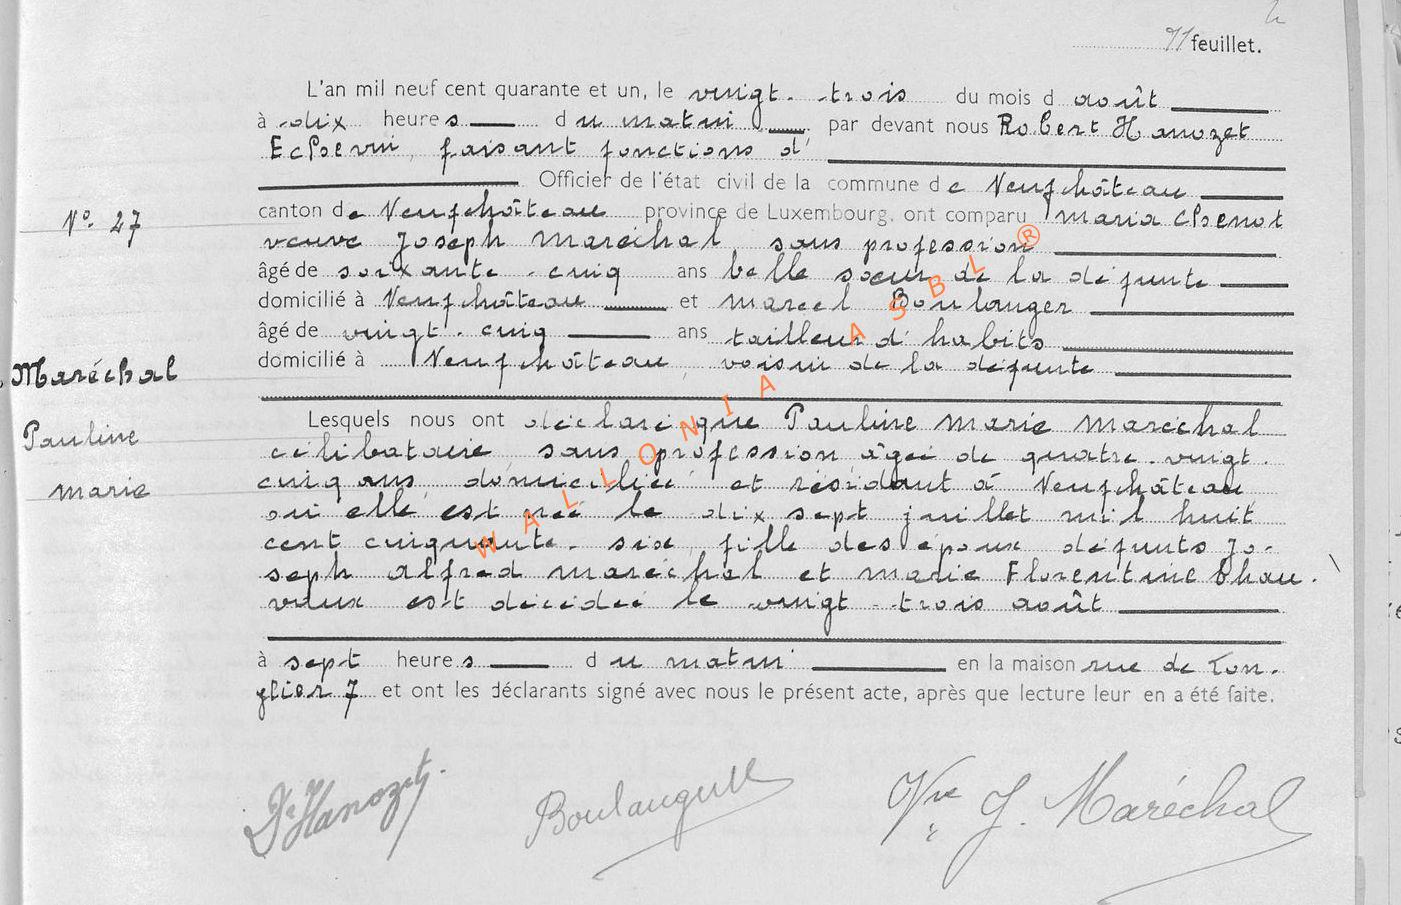 11 feuillet.
L'an mil neuf cent quarante et un, le vingt-trois du mois d août
à dix heures du matin par devant nous Robert Hanozet
Echevin, faisant fonctions d'
Officier de l'état civil de la commune de Neufchâteau
N° 27
canton de Neufchâteau province de Luxembourg, ont comparu Maria Chenot
veuve Joseph Maréchal, sans profession
âgé de soixante-cinq ans belle soeur de la défunte
domicilié à Neufchâteau et Marcel Boulanger
âgé de vingt-cinq ans tailleur d'habits
domicilié à Neufchâteau, voisin de la défunte
Maréchal
Pauline
Marie
Lesquels nous ont déclaré que Pauline Marie Maréchal
célibataire, sans profession âgée de quatre-vingt-
cinq ans, domiciliée et résidant à Neufchâteau
où elle est née le dix sept juillet mil huit
cent cinquante-six, fille des époux défunts Jo-
seph Alfred Maréchal et Marie Florentine Thau-
vaux est décédée le vingt-trois août
à sept heures du matin en la maison rue de Ton-
glier 7 et ont les déclarants signé avec nous le présent acte, après que lecture leur en a été faite.
Dr Hanozet. Boulanger Vve J. Maréchal
WALLONIA ASBL®